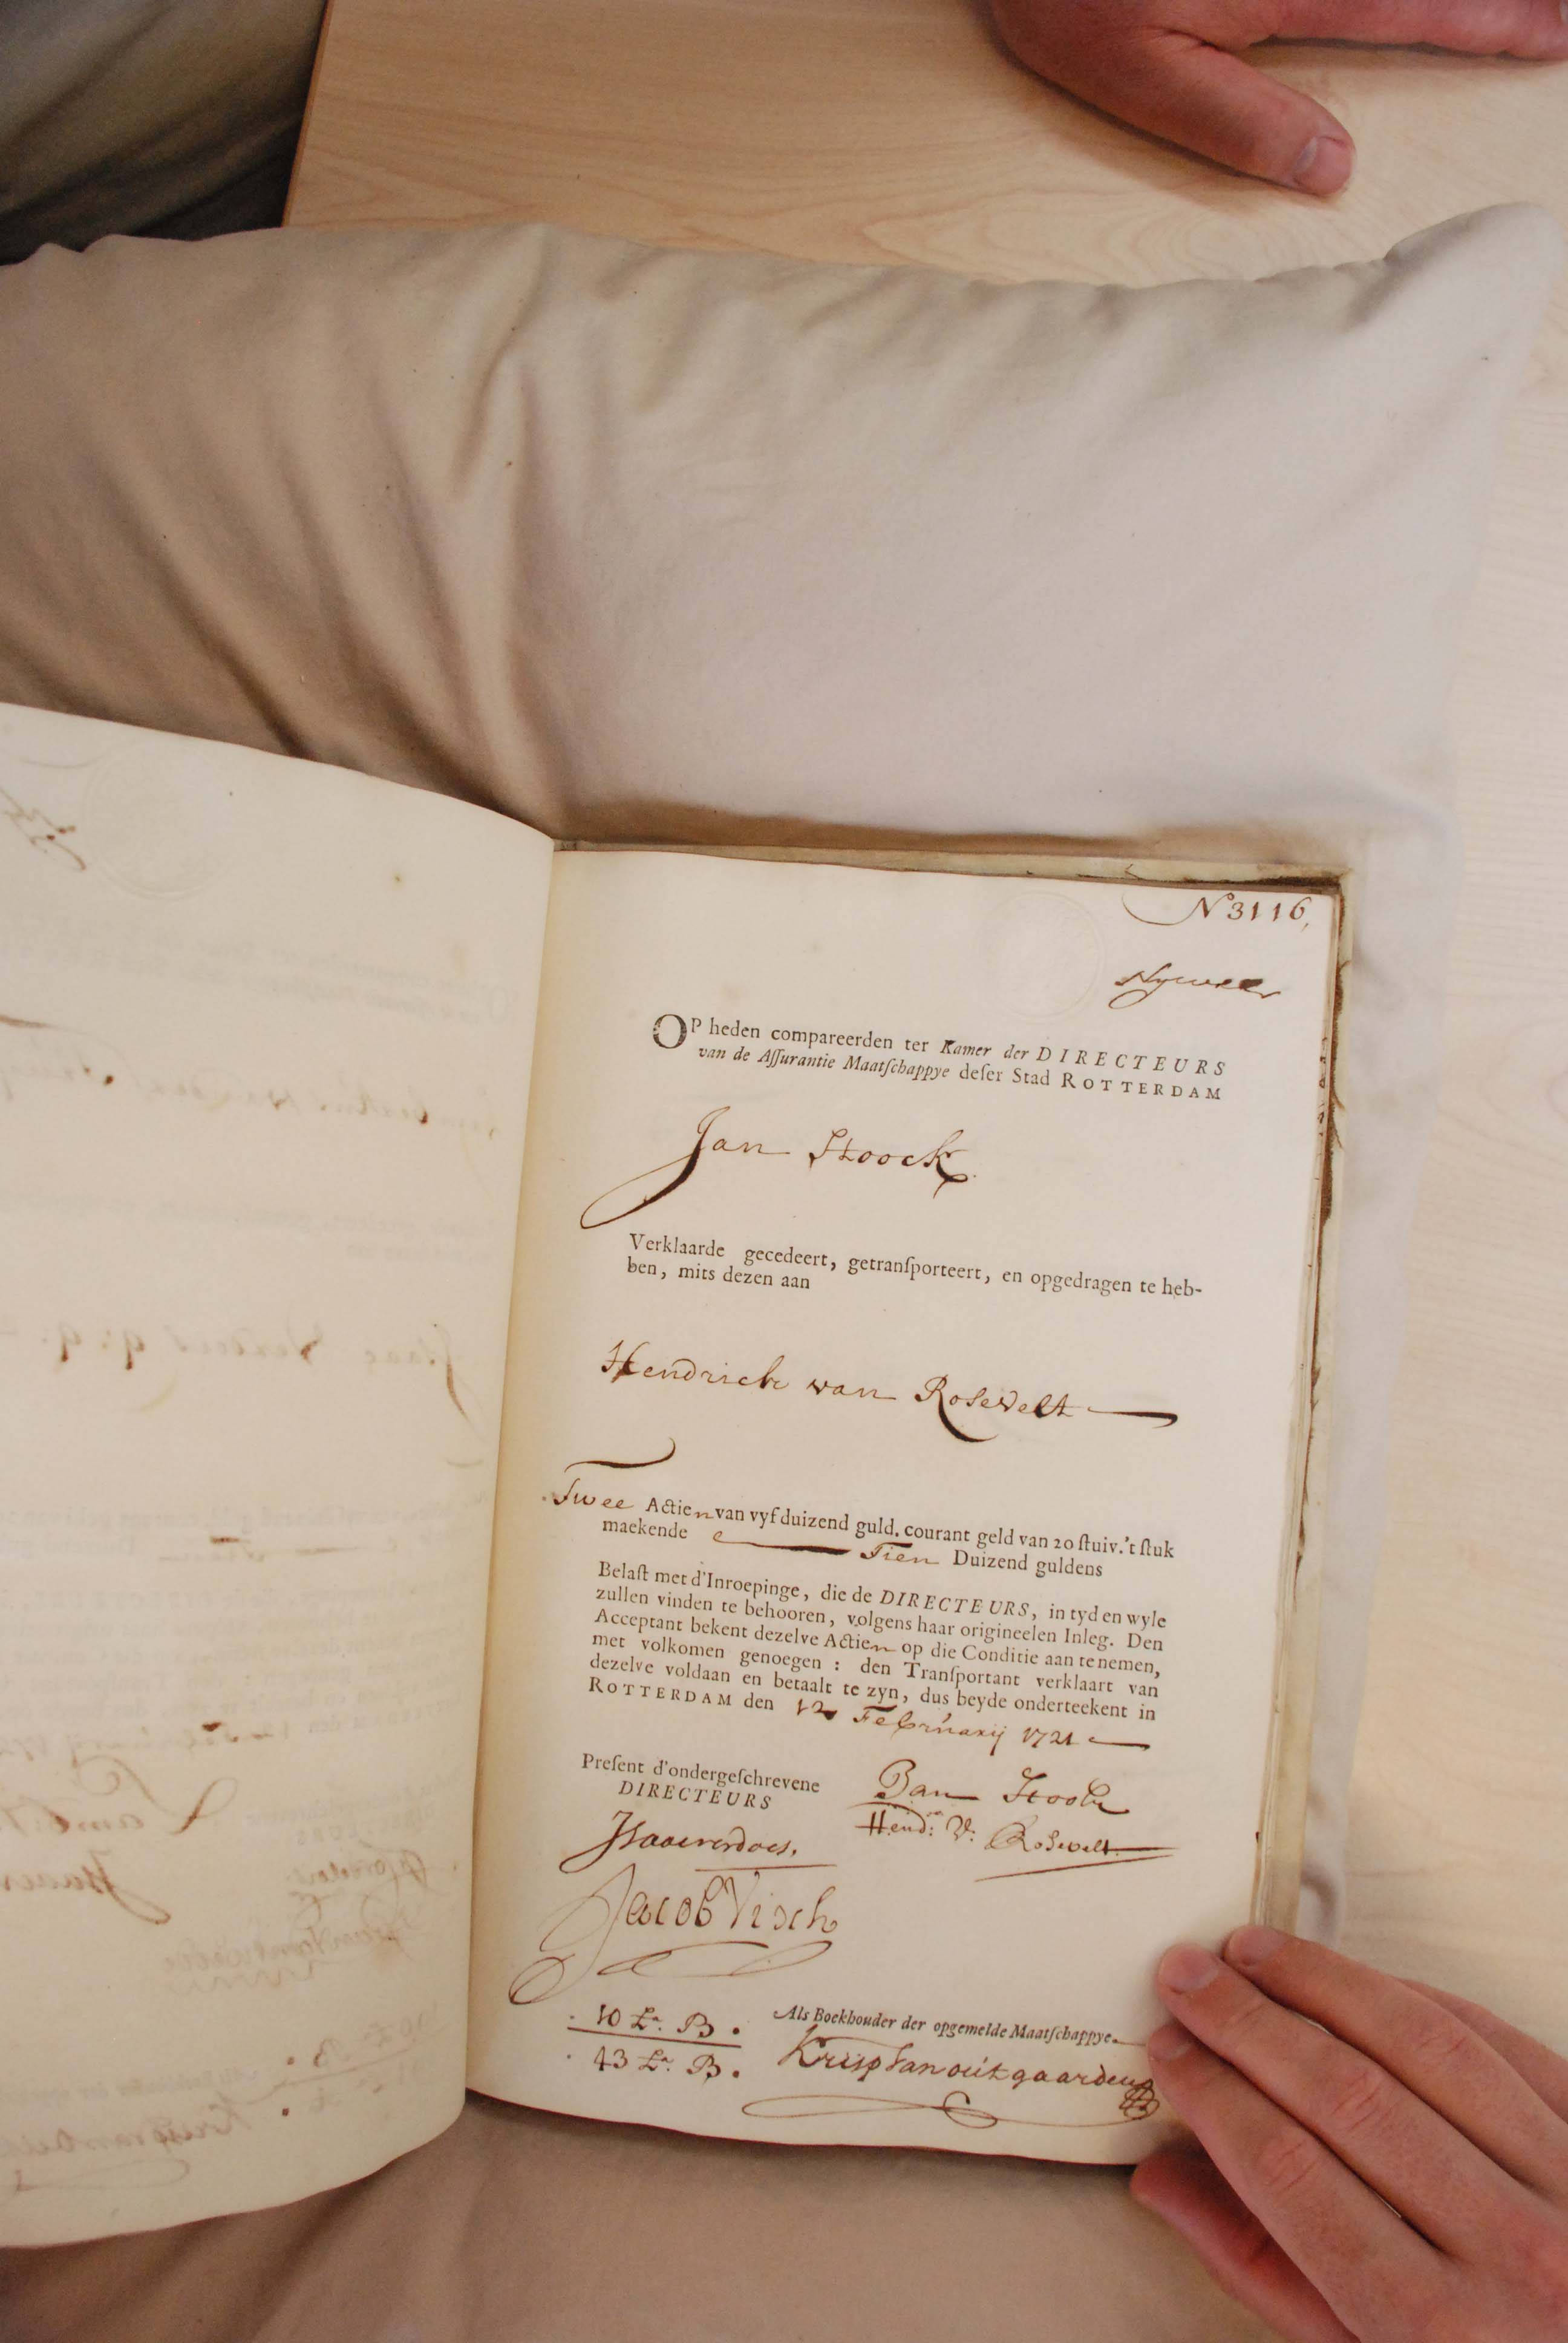 N° 3116,
Op heden compareerden ter Kamer der DIRECTEURS
van de Aſſurantie Maatſchappye deſer Stad ROTTERDAM
Jan Stoock
Verklaarde gecedeert, getranſporteert, en opgedragen te heb-
ben, mits dezen aan
Hendrick van Rosevelt
Twee Actien van vyf duizend guld. courant geld van 20 ſtuiv. 't ſtuk
maekende Tien Duizend guldens
Belaſt met d'Inroepinge, die de DIRECTEURS, in tyd en wyle
zullen vinden te behooren, volgens haar origineelen Inleg. Den
Acceptant bekent dezelve Actien op die Conditie aan te nemen,
met volkomen genoegen : den Tranſportant verklaart van
dezelve voldaan en betaalt te zyn, dus beyde onderteekent in
ROTTERDAM den 12 Februarij 1721
Preſent d'ondergeſchrevene
DIRECTEURS
Jan Stoock
Hend: V: Rosevelt
Isaac verdoes.
Jacob Visch
10 Lr. B.
43 Lr. B.
Als Boekhouder der opgemelde Maatſchappye.
Krisp Van outgaarden